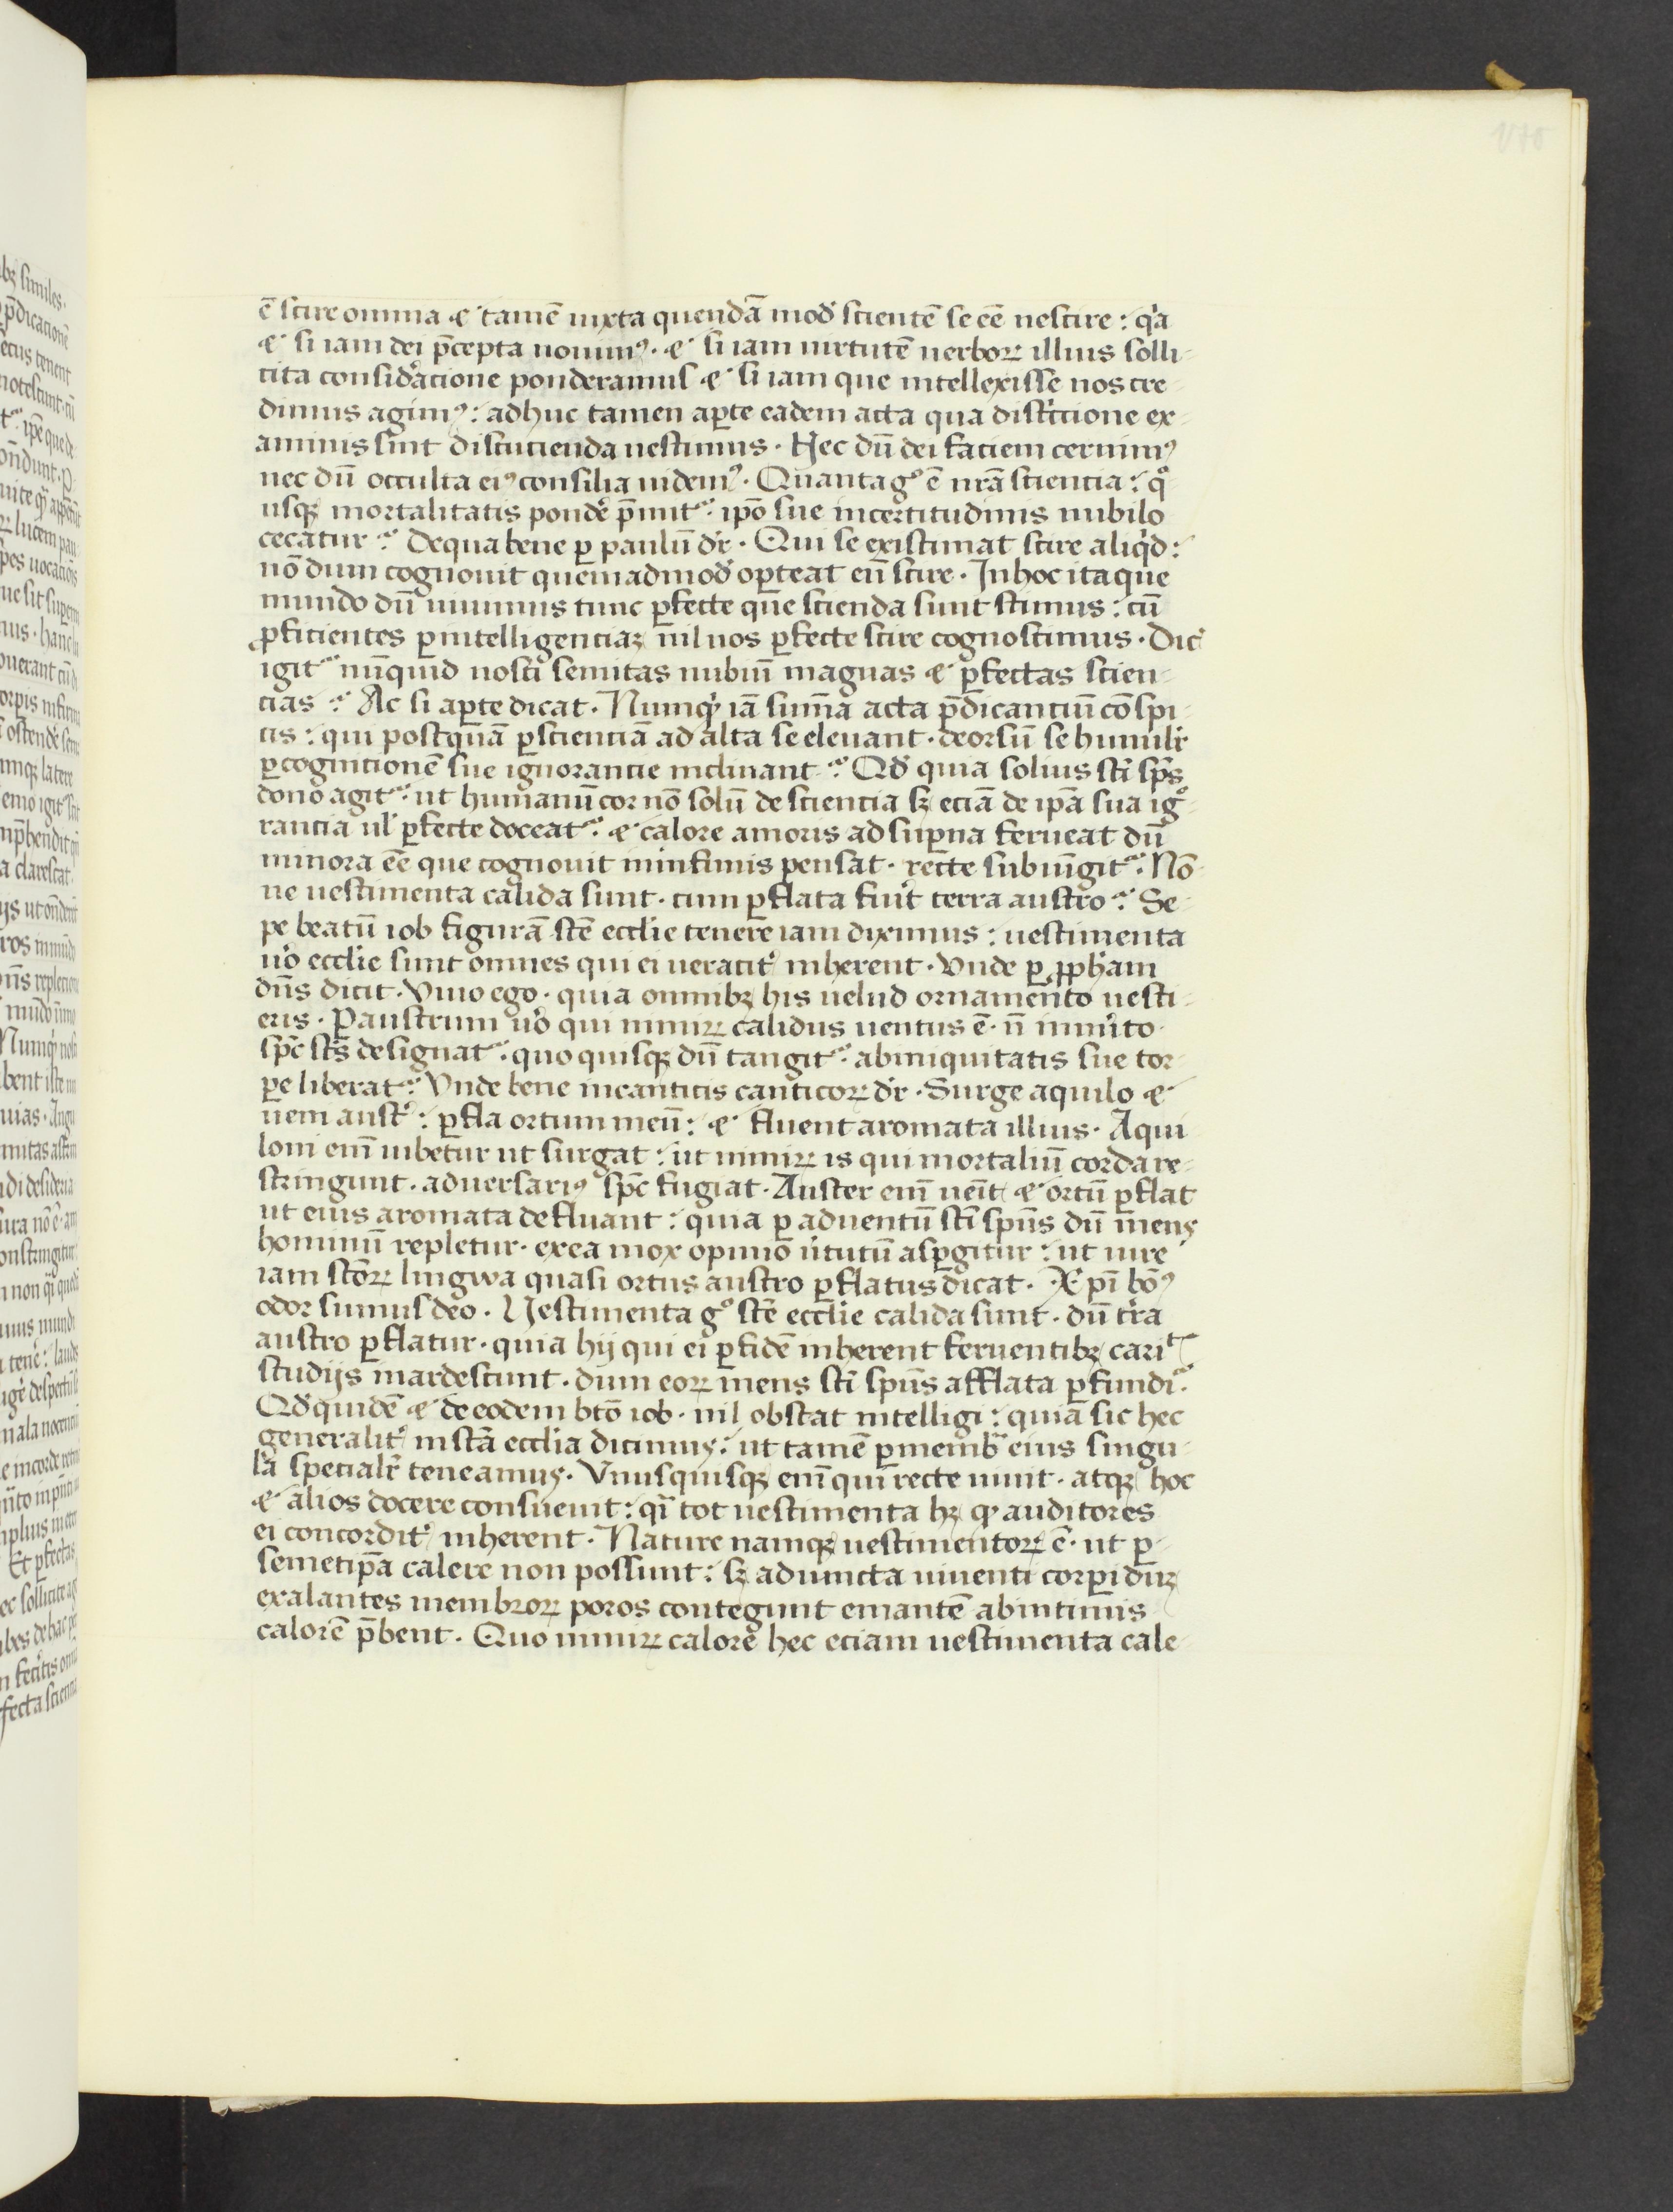 ē scire omnia · ⁊ tamē iuxta quendā mod̕ scientē se eē nescire : q̇a
⁊ si iam dei p̄cepta nouim⁹ · ⁊ si iam uirtutē uerboꝝ illius solli-
cita consid̕acione ponderamus ⁊ si iam que intellexisse nos cre-
dimus agim⁹ : adhuc tamen aꝑte eadem acta qua distʳictione ex-
aminis sint discucienda nescimus · Nec dū dei faciem cernim⁹
nec dū occulta ei⁹ consilia uidem⁹ · Quanta gͦ ē nrā sciencia : qͦ
usqꝫ mortalitatis ponde᷑ p̄mit᷑ ipō sue incertitudinis nubilo
cecatur ? De qua bene ꝑ paulū dr̄ · Qui se existimat scire aliqͥd :
nō dum cognouit quemadmod̕ oꝑteat eū scire · In hoc itaque
mundo dū uiuimus tunc ꝑfecte que scienda sunt scimus : cū
ꝓficientes ꝑ intelligenciaꝫ nīl nos ꝑfecte scire cognoscimus · Dic̕
igit᷑ nūquid nosti semitas nubiū magnas ⁊ ꝑfectas scien-
cias ? Ac si aꝑte dicat · Numqͥ iā sum̄a acta p̄dicanciū cōspi-
cis : qui postquā ꝑ scienciā ad alta se eleuant · deorsū se humilr̄
ꝑ cognicionē sue ignorancie inclinant ? Qd̕ quia solius sc̄i sp̄s
dono agit᷑ ut humanū cor nō solū de sciencia sꝫ eciā de ipā sua igͦ-
rancia ul̕ ꝑfecte doceat᷑ ⁊ calore amoris ad suꝑna ferueat dū
minora eē que cognouit in infimis pensat · recte subiūgit᷑ · Nō-
ne uestimenta calida sunt · cum ꝑflata fu̕it terra austro ? Se-
pe beatū iob figurā sc̄e eccl̕ie tenere iam diximus : uestimenta
u̕o eccl̕ie sunt omnes qui ei ueracit̕ inherent · Vnde ꝑ ꝓph̕am
dn̄s dicit · Viuo ego · quia omnibꝫ his uelud ornamento uesti-
eris · P austrum u̕o qui nimiꝝ calidus uentus ē · n̄ inm̕ito ·
sp̄c sc̄s designat᷑ · quo quisqꝫ dū tangit᷑ · ab iniquitatis sue tor-
pe liberat᷑ · Vnde bene in canticis canticoꝝ dr̄ · Surge aquilo ⁊
ueni aust̕ : ꝑfla ortum meū : ⁊ fluent aromata illius · Aqui
loni eni᷑ iubetur ut surgat : ut nimiꝝ is qui mortaliū corda re-
stringunt · aduersari⁹ sp̄c fugiat · Auster eni᷑ uenit ⁊ ortū ꝑflat
ut eius aromata defluant : quia ꝑ aduentū sc̄i sp̄us dū mens
hominū repletur · ex ea mox opinio u̕tutū asꝑgitur : ut iure
iam sc̄oꝝ lingwa quasi ortus austro ꝑflatus dicat · Xp̄i bō⁹
odor sumus deo · Uestimenta gͦ sc̄e eccl̕ie calida sunt · dū t̕ra
austro ꝑflatur · quia hij qui ei ꝑ fidē inherent feruentibꝫ carit̕
studijs inardescunt · dum eoꝝ mens sc̄i sp̄us afflata ꝑfundi᷑ ·
Qd̕ quidē ⁊ de eodem btō iob · nil obstat intelligi : quia sic hec
generalit̕ in sc̄a eccl̕ia dicimus : ut tamē ꝑ memb̕ eius singu-
l̕a specialr̄ teneamus · Vnusquisqꝫ eni᷑ qui recte uiuit · atqꝫ hoc
⁊ alios docere consueuit : qͣi tot uestimenta hꝫ qͦ auditores
ei concordit̕ inherent · Nature namqꝫ uestimentoꝝ ē · ut ꝑ-
semetip̄a calere non possunt : sꝫ adiuncta uiuenti corꝑi duꝫ
exalantes membroꝝ poros contegunt emantē ab intimis
calorē p̄bent · Quo nimiꝝ calore hec eciam uestimenta cale-